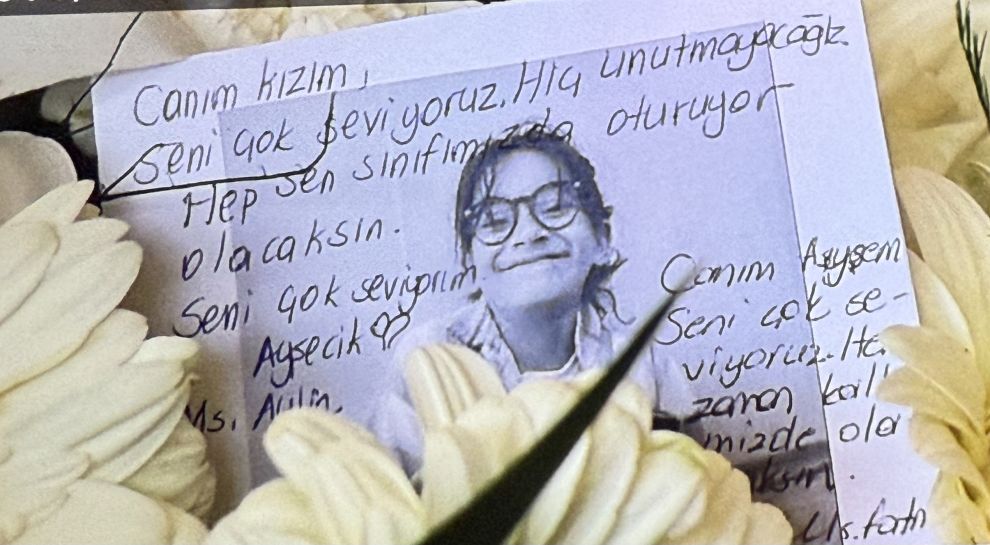 Canım kızım,
Seni çok seviyoruz. Hiç unutmayacağız.
Hep sen sınıfımızda oturuyor
olacaksın.
Seni çok seviyorum
Ayşecik ♡
Ms. Aylin.
Canım Ayşem
Seni çok se-
viyoruz. He
zaman kall
mizde ola
ksın.